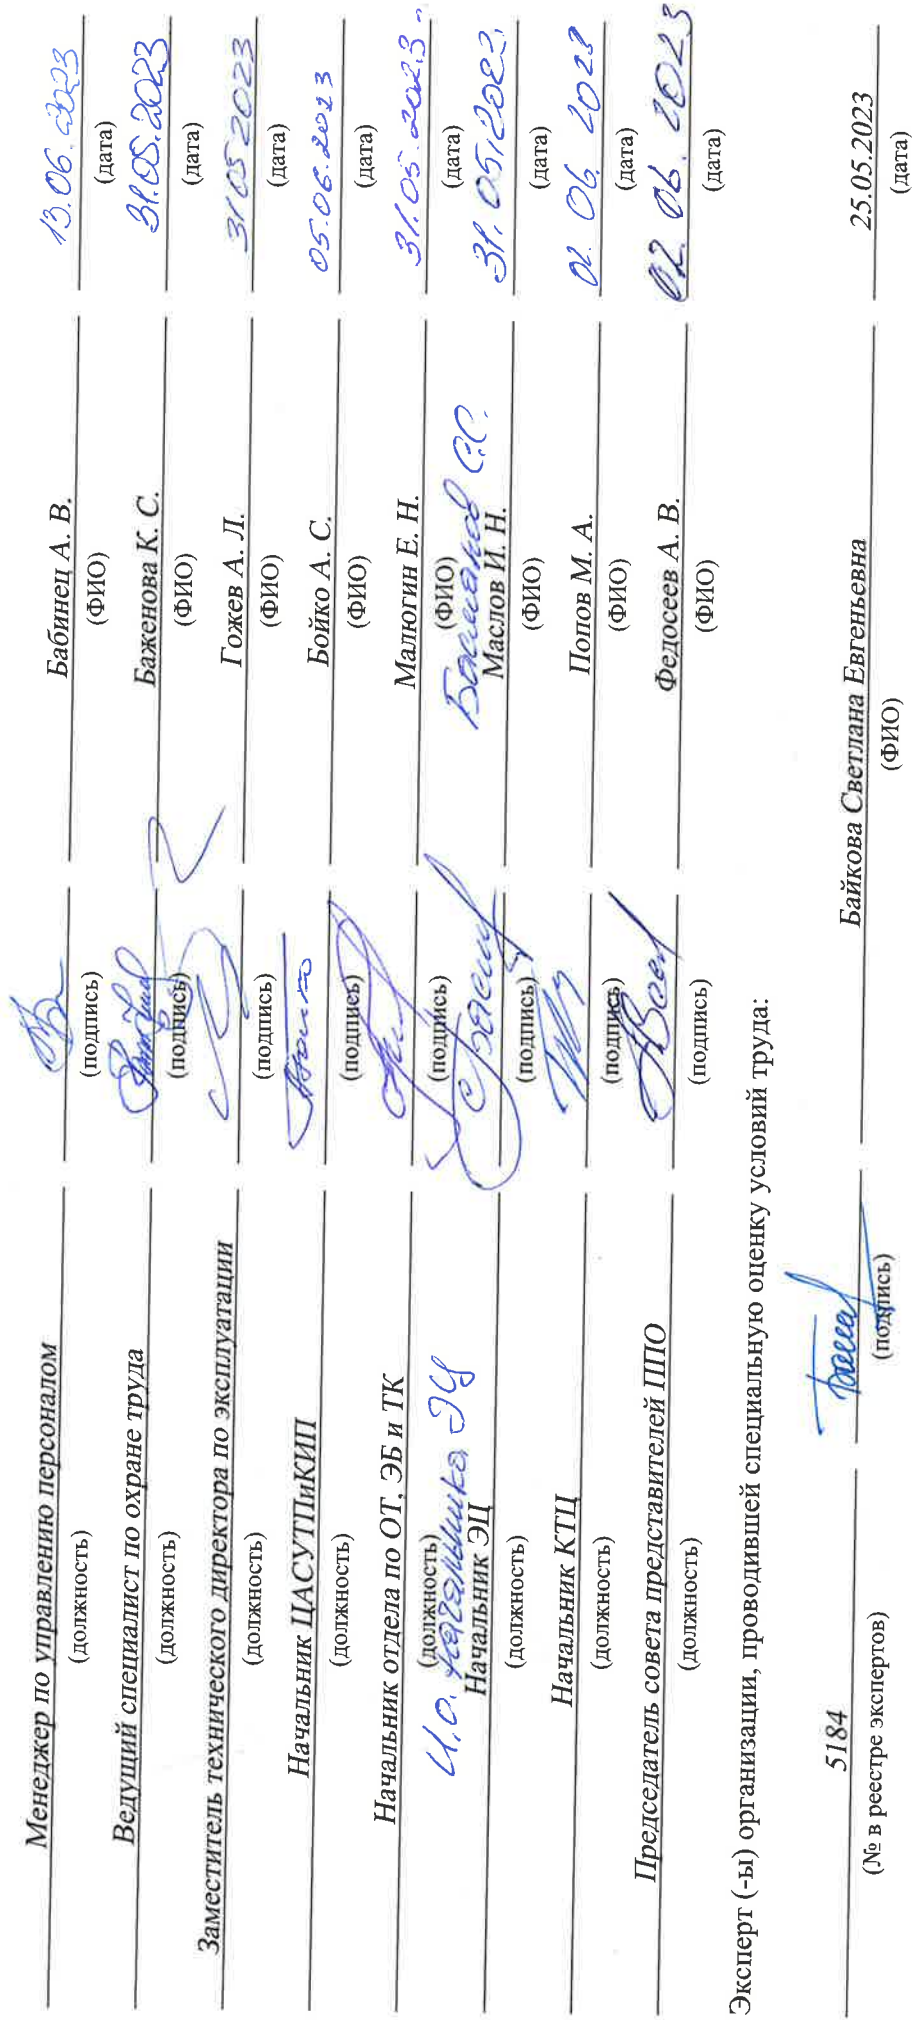 Менеджер по управлению персоналом Бабинец А. В. 13.06.2023
(должность) (подпись) (ФИО) (дата)
Ведущий специалист по охране труда Баженова К. С. 31.05.2023
(должность) (подпись) (ФИО) (дата)
Заместитель технического директора по эксплуатации Гожев А. Л. 31 05 2023
(должность) (подпись) (ФИО) (дата)
Начальник ЦАСУТПиКИП Бойко А. С. 05.06.2023
(должность) (подпись) (ФИО) (дата)
Начальник отдела по ОТ, ЭБ и ТК Малюгин Е. Н. 31.05.2023
(должность) (подпись) (ФИО) (дата)
И.о. начальника ЭЦ С.С.
Начальник ЭЦ Маслов И. Н. 31.05.2022.
(должность) (подпись) (ФИО) (дата)
Начальник КТЦ Попов М. А. 06. 2023
(должность) (подпись) (ФИО) (дата)
Председатель совета представителей ППО Федосеев А. В. 02. 06. 2023
(должность) (подпись) (ФИО) (дата)
Эксперт (-ы) организации, проводившей специальную оценку условий труда:
5184 Байкова Светлана Евгеньевна 25.05.2023
(№ в реестре экспертов) (подпись) (ФИО) (дата)